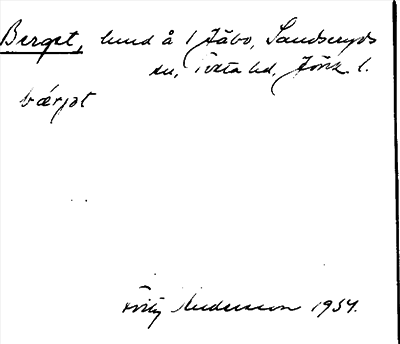 Berget, lund å 1 Åsbo, Sandseryds
sn, Tveta hd, Jönk. l.
bærjət
Fritz Andersson 1934.